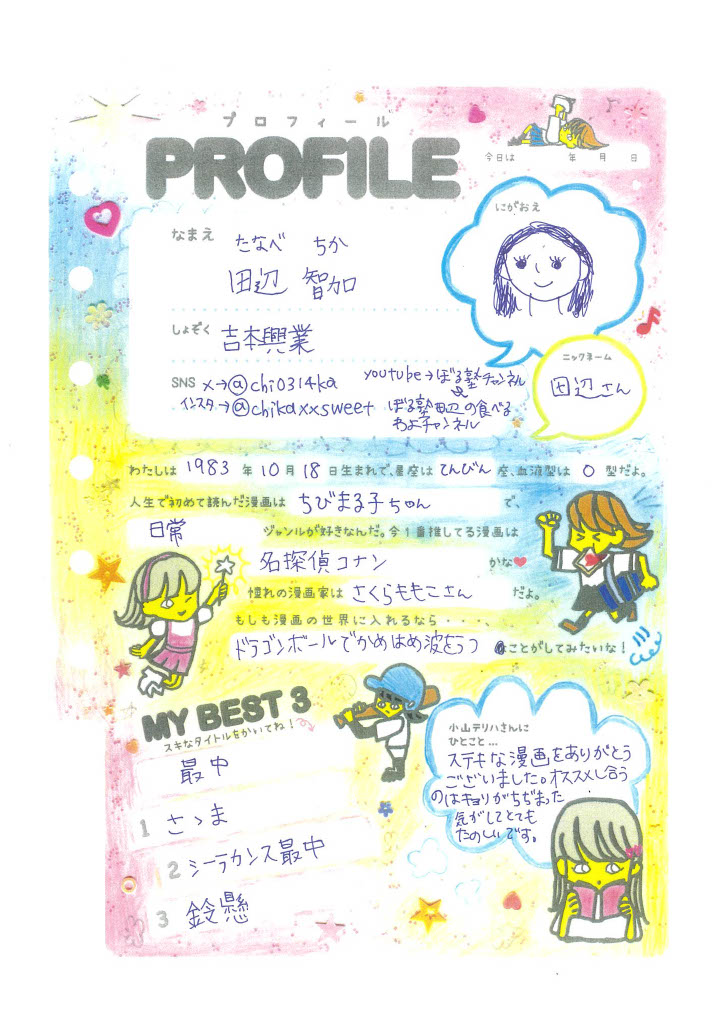 プロフィール
PROFILE
今日は 年 月 日
にがおえ
なまえ たなべ ちか
田辺 智加
しょぞく 吉本興業
ニックネーム
田辺さん
SNS X→@chi0314ka
インスタ→@chikaxxsweet
youtube→ぼる塾チャンネル
ぼる塾田辺の食べる
わよチャンネル
わたしは 1983 年 10 月 18 日生まれで、星座は てんびん 座、血液型は O 型だよ。
人生で初めて読んだ漫画は ちびまる子ちゃん で、
日常 ジャンルが好きなんだ。今1番推してる漫画は
名探偵コナン かな
憧れの漫画家は さくらももこさん だよ。
もしも漫画の世界に入れるなら・・・・、
ドラゴンボールでかめはめ波をうつ ことがしてみたいな！
MY BEST 3
スキなタイトルをかいてね！
最中
1 さゝま
2 シーラカンス最中
3 鈴懸
小山テリハさんに
ひとこと...
ステキな漫画をありがとう
ございました。オススメし合う
のはキョリがちぢまった
気がしてとても
たのしいです。